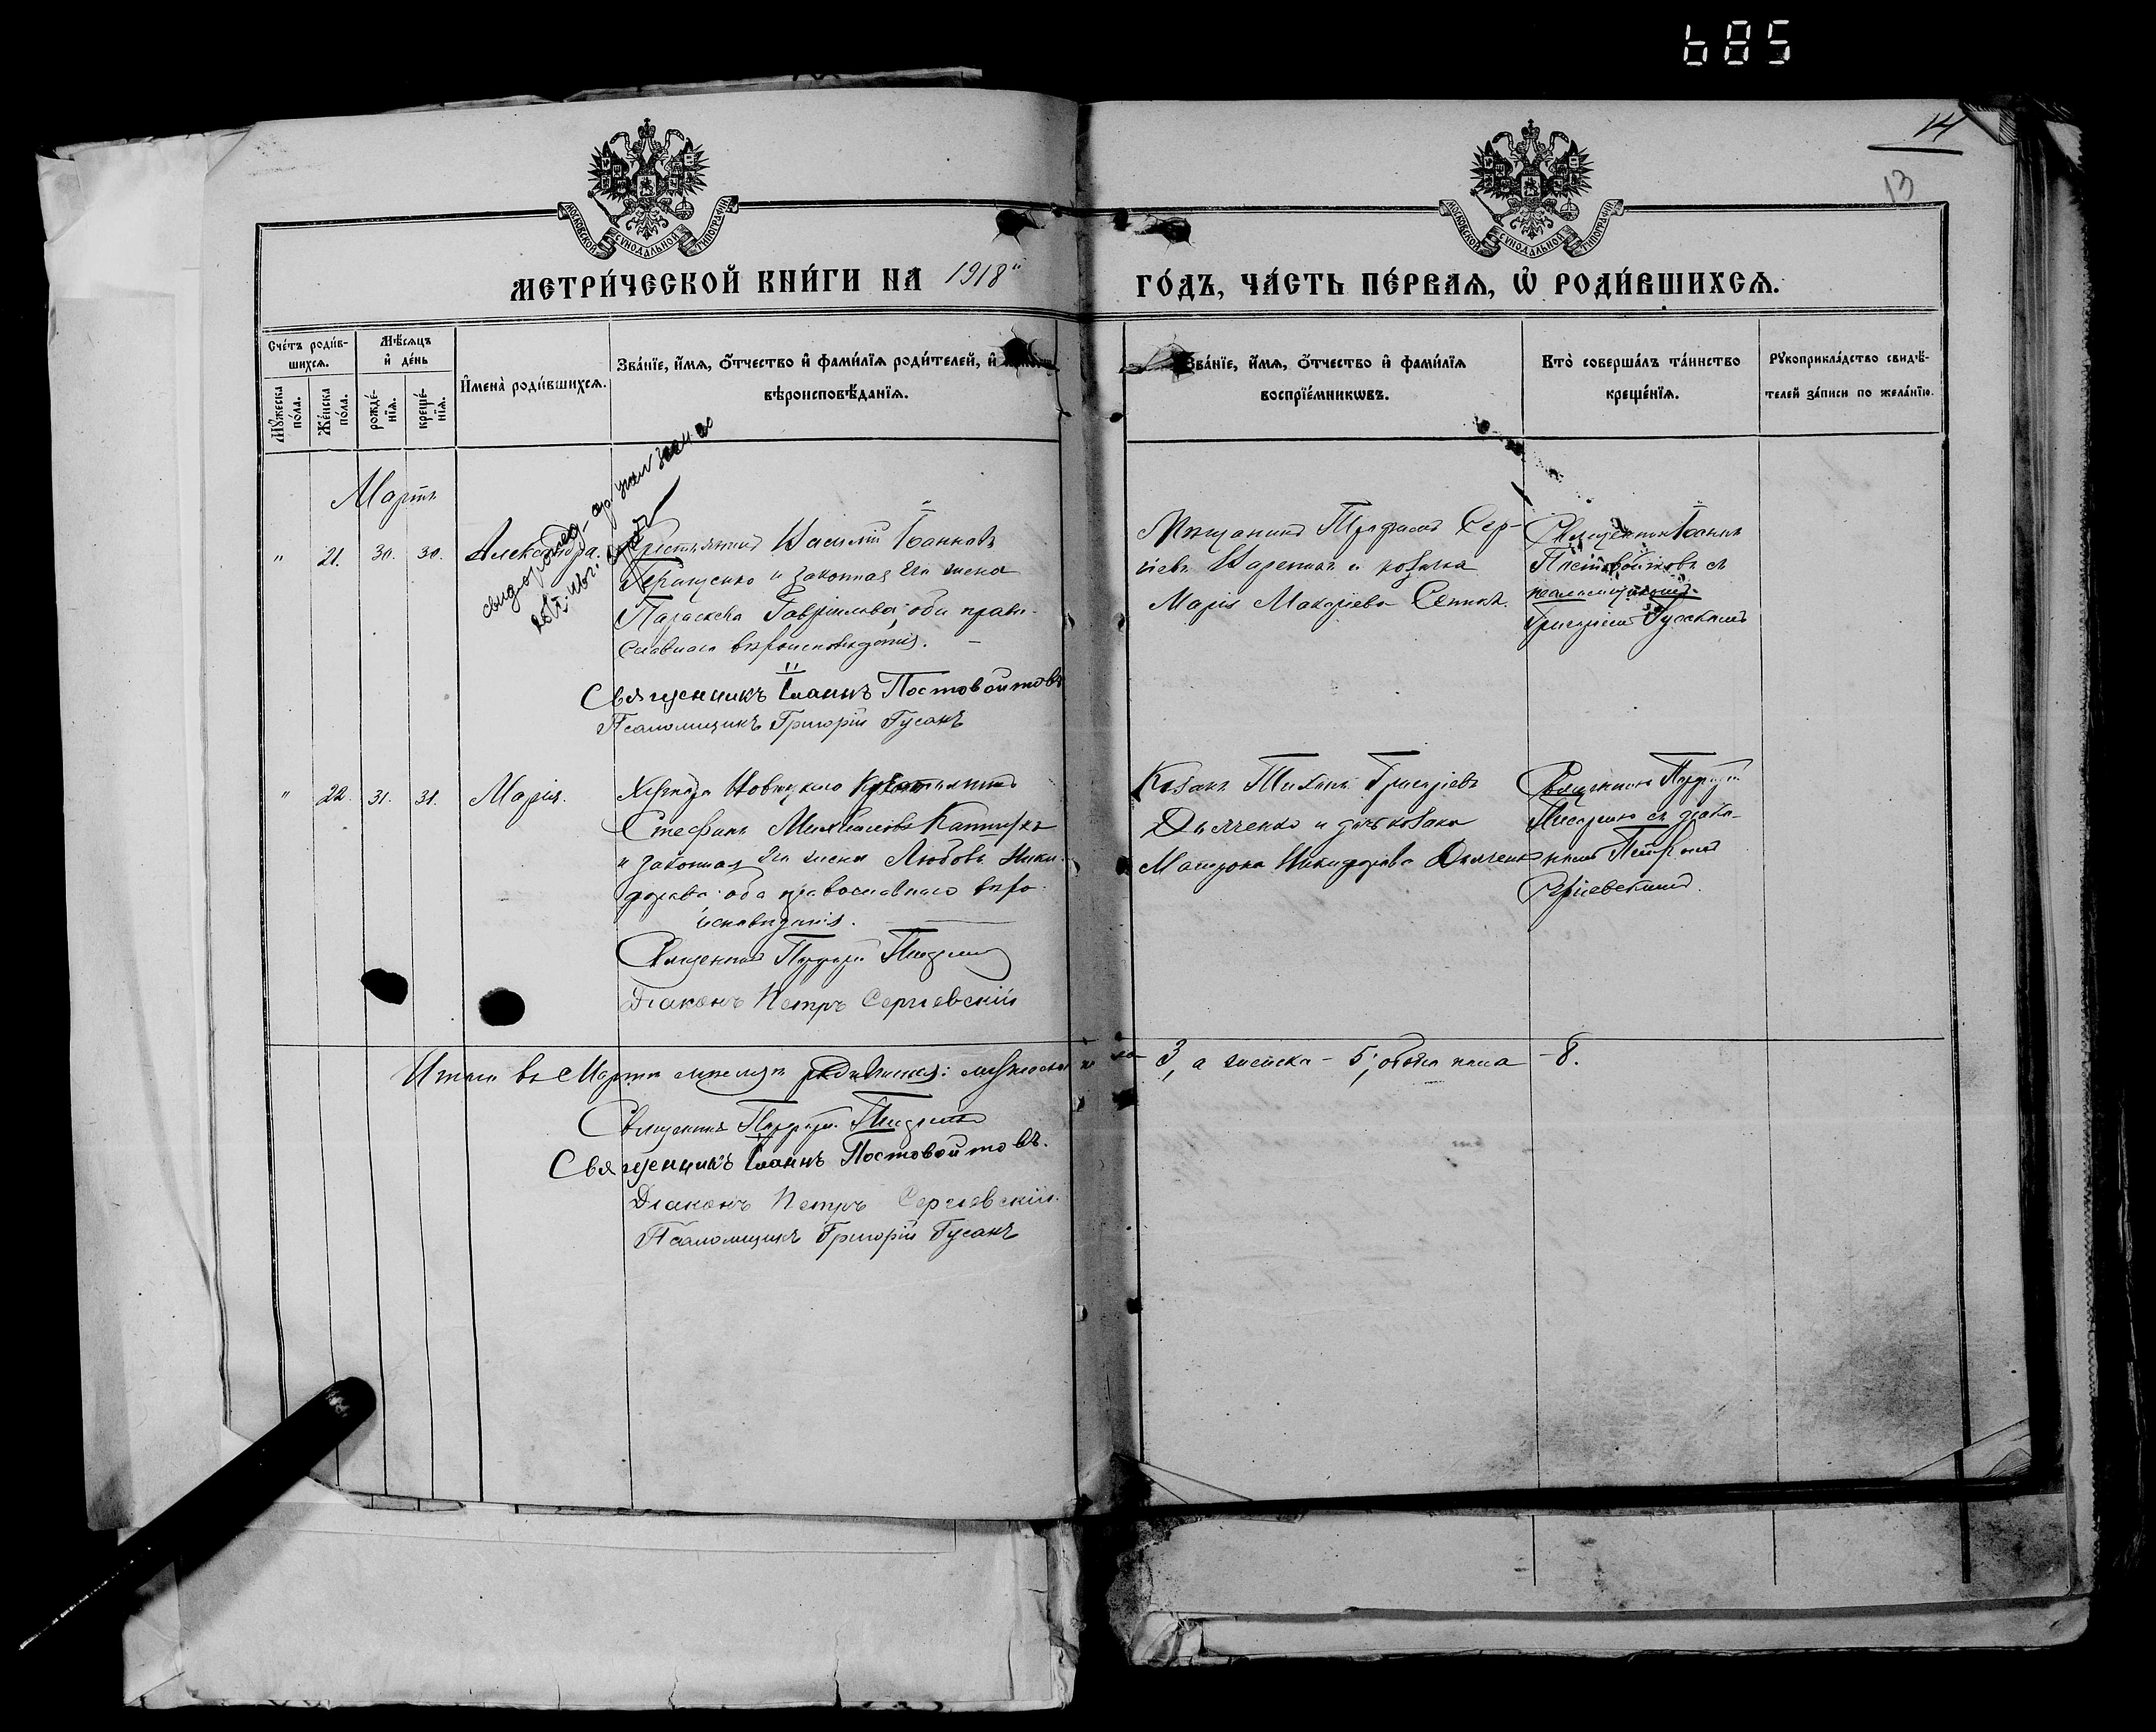 685
14
13
МОСКОВСКОЙ СУНОДАЛЬНОЙ ТИПОГРАФІИ
МОСКОВСКОЙ СУНОДАЛЬНОЙ ТИПОГРАФІИ
МЕТРИ́ЧЕСКОЙ КНИ́ГИ НА 1918
ГО́ДЪ, ЧА́СТЬ ПЕ́РВАѦ, Ѽ РОДИ́ВШИХСѦ.
Сче́тъ роди́в-
шихсѧ.
Мꙋ́жеска по́ла.
Же́нска по́ла.
Мѣ́сѧцъ и҆ де́нь
рожде́-нїѧ.
креще́-нїѧ.
И҆мена̀ роди́вшихсѧ.
Зва́нїе, и҆́мѧ, ѻ҆́тчество и҆ фами́лїѧ роди́телей, и҆
вѣроисповѣ́данїѧ.
Зва́нїе, и҆́мѧ, ѻ҆́тчество и҆ фами́лїѧ
воспрїе́мникѡвъ.
Кто̀ соверша́лъ та́инство
креще́нїѧ.
Рꙋкоприкла́дство свидѣ́-
телей за́писи по жела́нїю.
Мартъ
" 21. 30. 30. Александра.
Крестьянинъ Василій Іоанновъ
Геращенко и законная его жена
Параскева Гавріилова; оба право-
славнаго вѣроисповѣданія.
Священникъ Іоаннъ Постовойтовъ
Псаломщикъ Григорій Гусакъ
Мѣщанинъ Трофимъ Сер-
гіевъ и козачка
Марія Макаріева
Священникъ Іоаннъ
Постовойтовъ съ
псаломщикомъ
Григоріемъ Гусакомъ
" 22. 31. 31. Марія.
Хутора Новицкаго Крестьянинъ
Стефанъ Михаиловъ
и законная его жена Любовь Ники-
форова оба православнаго вѣро-
исповѣданія.
Священникъ
Діаконъ Петръ Сергіевскій
Козакъ Тихонъ Григоріевъ
Дьяченко и дочь козака
Матрона Никифорова Дьяченко
Священникъ
съ діако-
номъ Петромъ
Сергіевскимъ.
Итого въ Мартѣ мѣсяцѣ родившихся: мужеска по
ла 3, а женска - 5; обоего пола - 8.
Священникъ
Священникъ Іоаннъ Постовойтовъ.
Діаконъ Петръ Сергіевскій.
Псаломщикъ Григорій Гусакъ